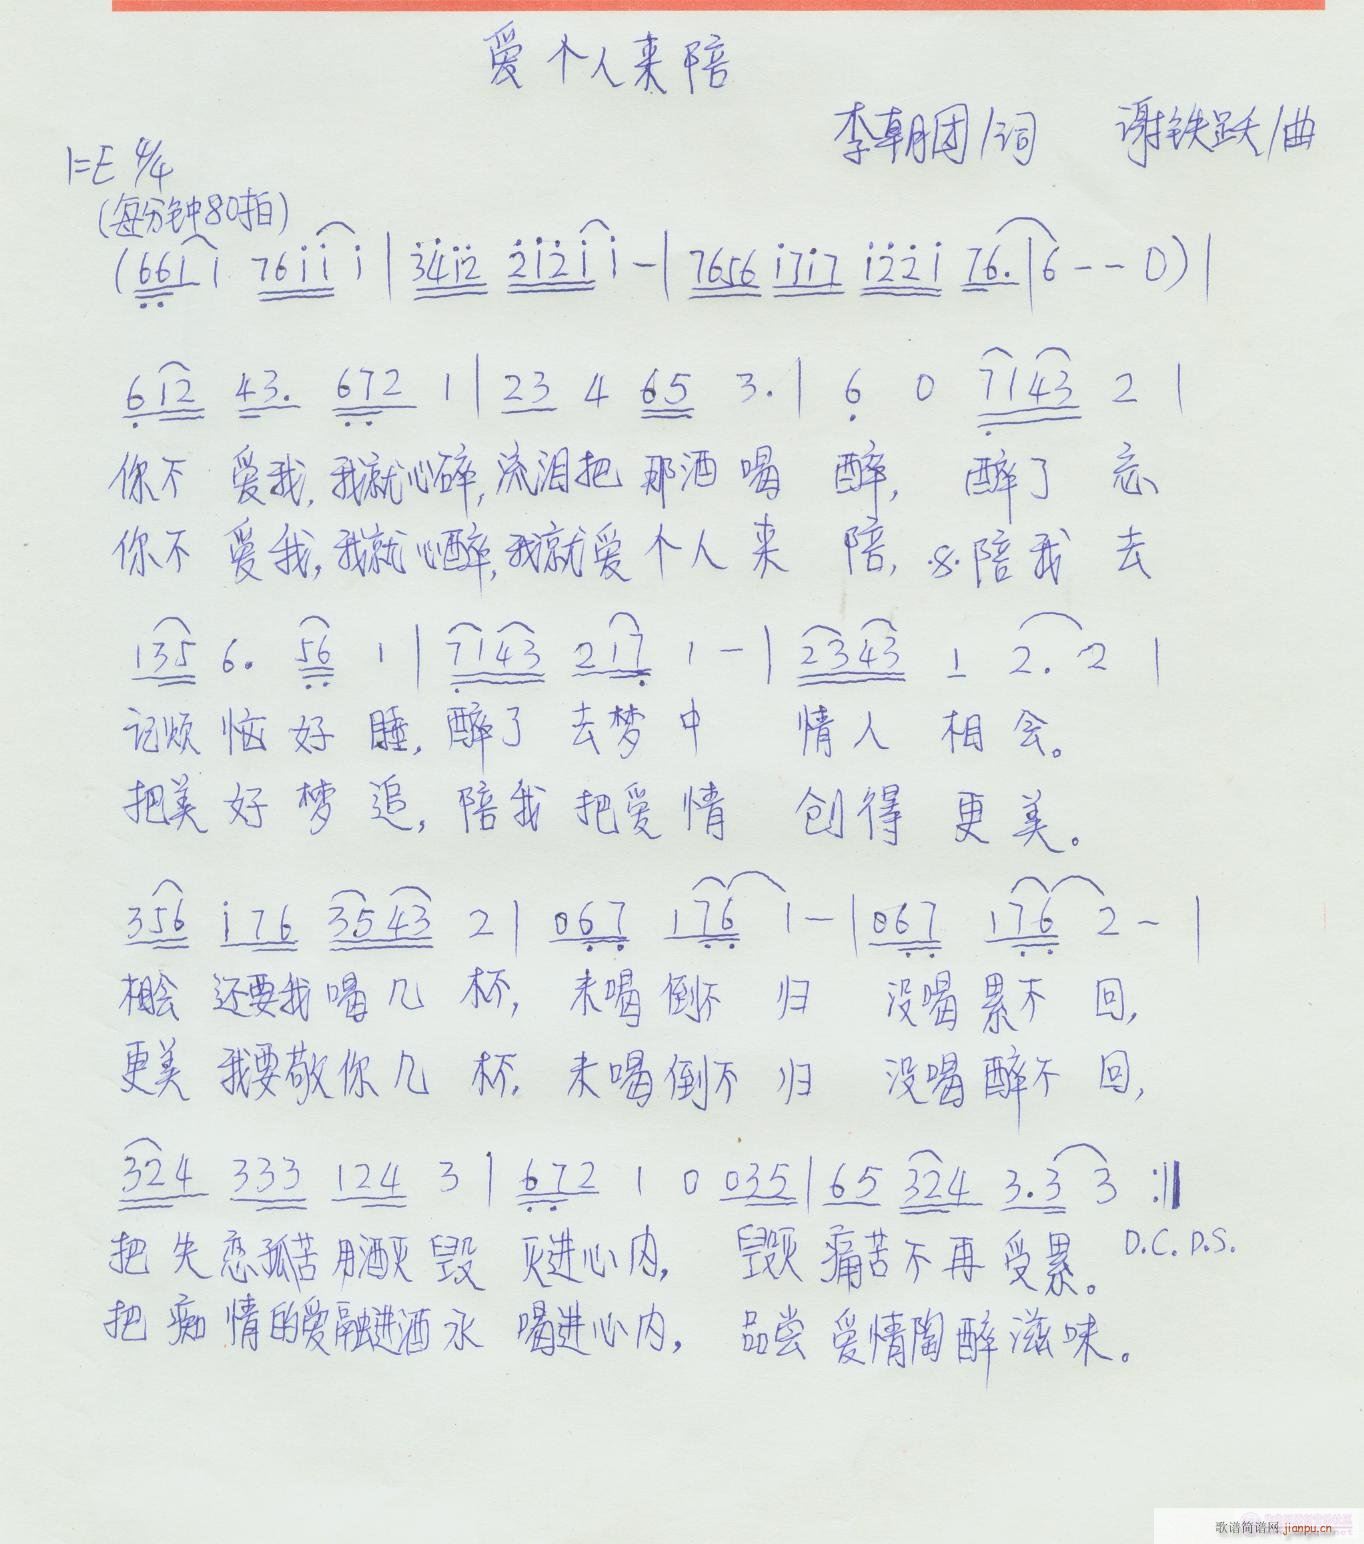 爱个人来陪
李朝团/词 谢铁跃/曲
1=E 4/4
(每分钟80拍)
(661 1 7611 1 | 3412 21211 - | 7656 1717 1221 76. | 6 - - 0) |
612 43. 672 1 | 23 4 65 3. | 6 0 7143 2 |
你不 爱我, 我就心碎, 流泪把 那酒 喝 醉, 醉了 忘
你不 爱我, 我就心醉, 我就爱个人来 陪, 陪我 去
135 6. 56 1 | 7143 217 1 - | 2343 1 2. 2 |
记烦恼好 睡, 醉了 去梦中 情人 相会。
把美好梦追, 陪我 把爱情 创得 更美。
356 176 3543 2 | 067 176 1 - | 067 176 2 - |
相会 还要我喝几 杯, 未喝倒不 归 没喝累不 回,
更美 我要敬你几 杯, 未喝倒不 归 没喝醉不 回,
324 333 124 3 | 672 1 0 035 | 65 324 3.3 3 :||
把失恋孤苦用酒灭毁 灭进心内, 毁灭痛苦不再受累。 D.C. D.S.
把痴情的爱融进酒水 喝进心内, 品尝爱情陶醉滋味。
歌谱简谱网 jianpu.cn